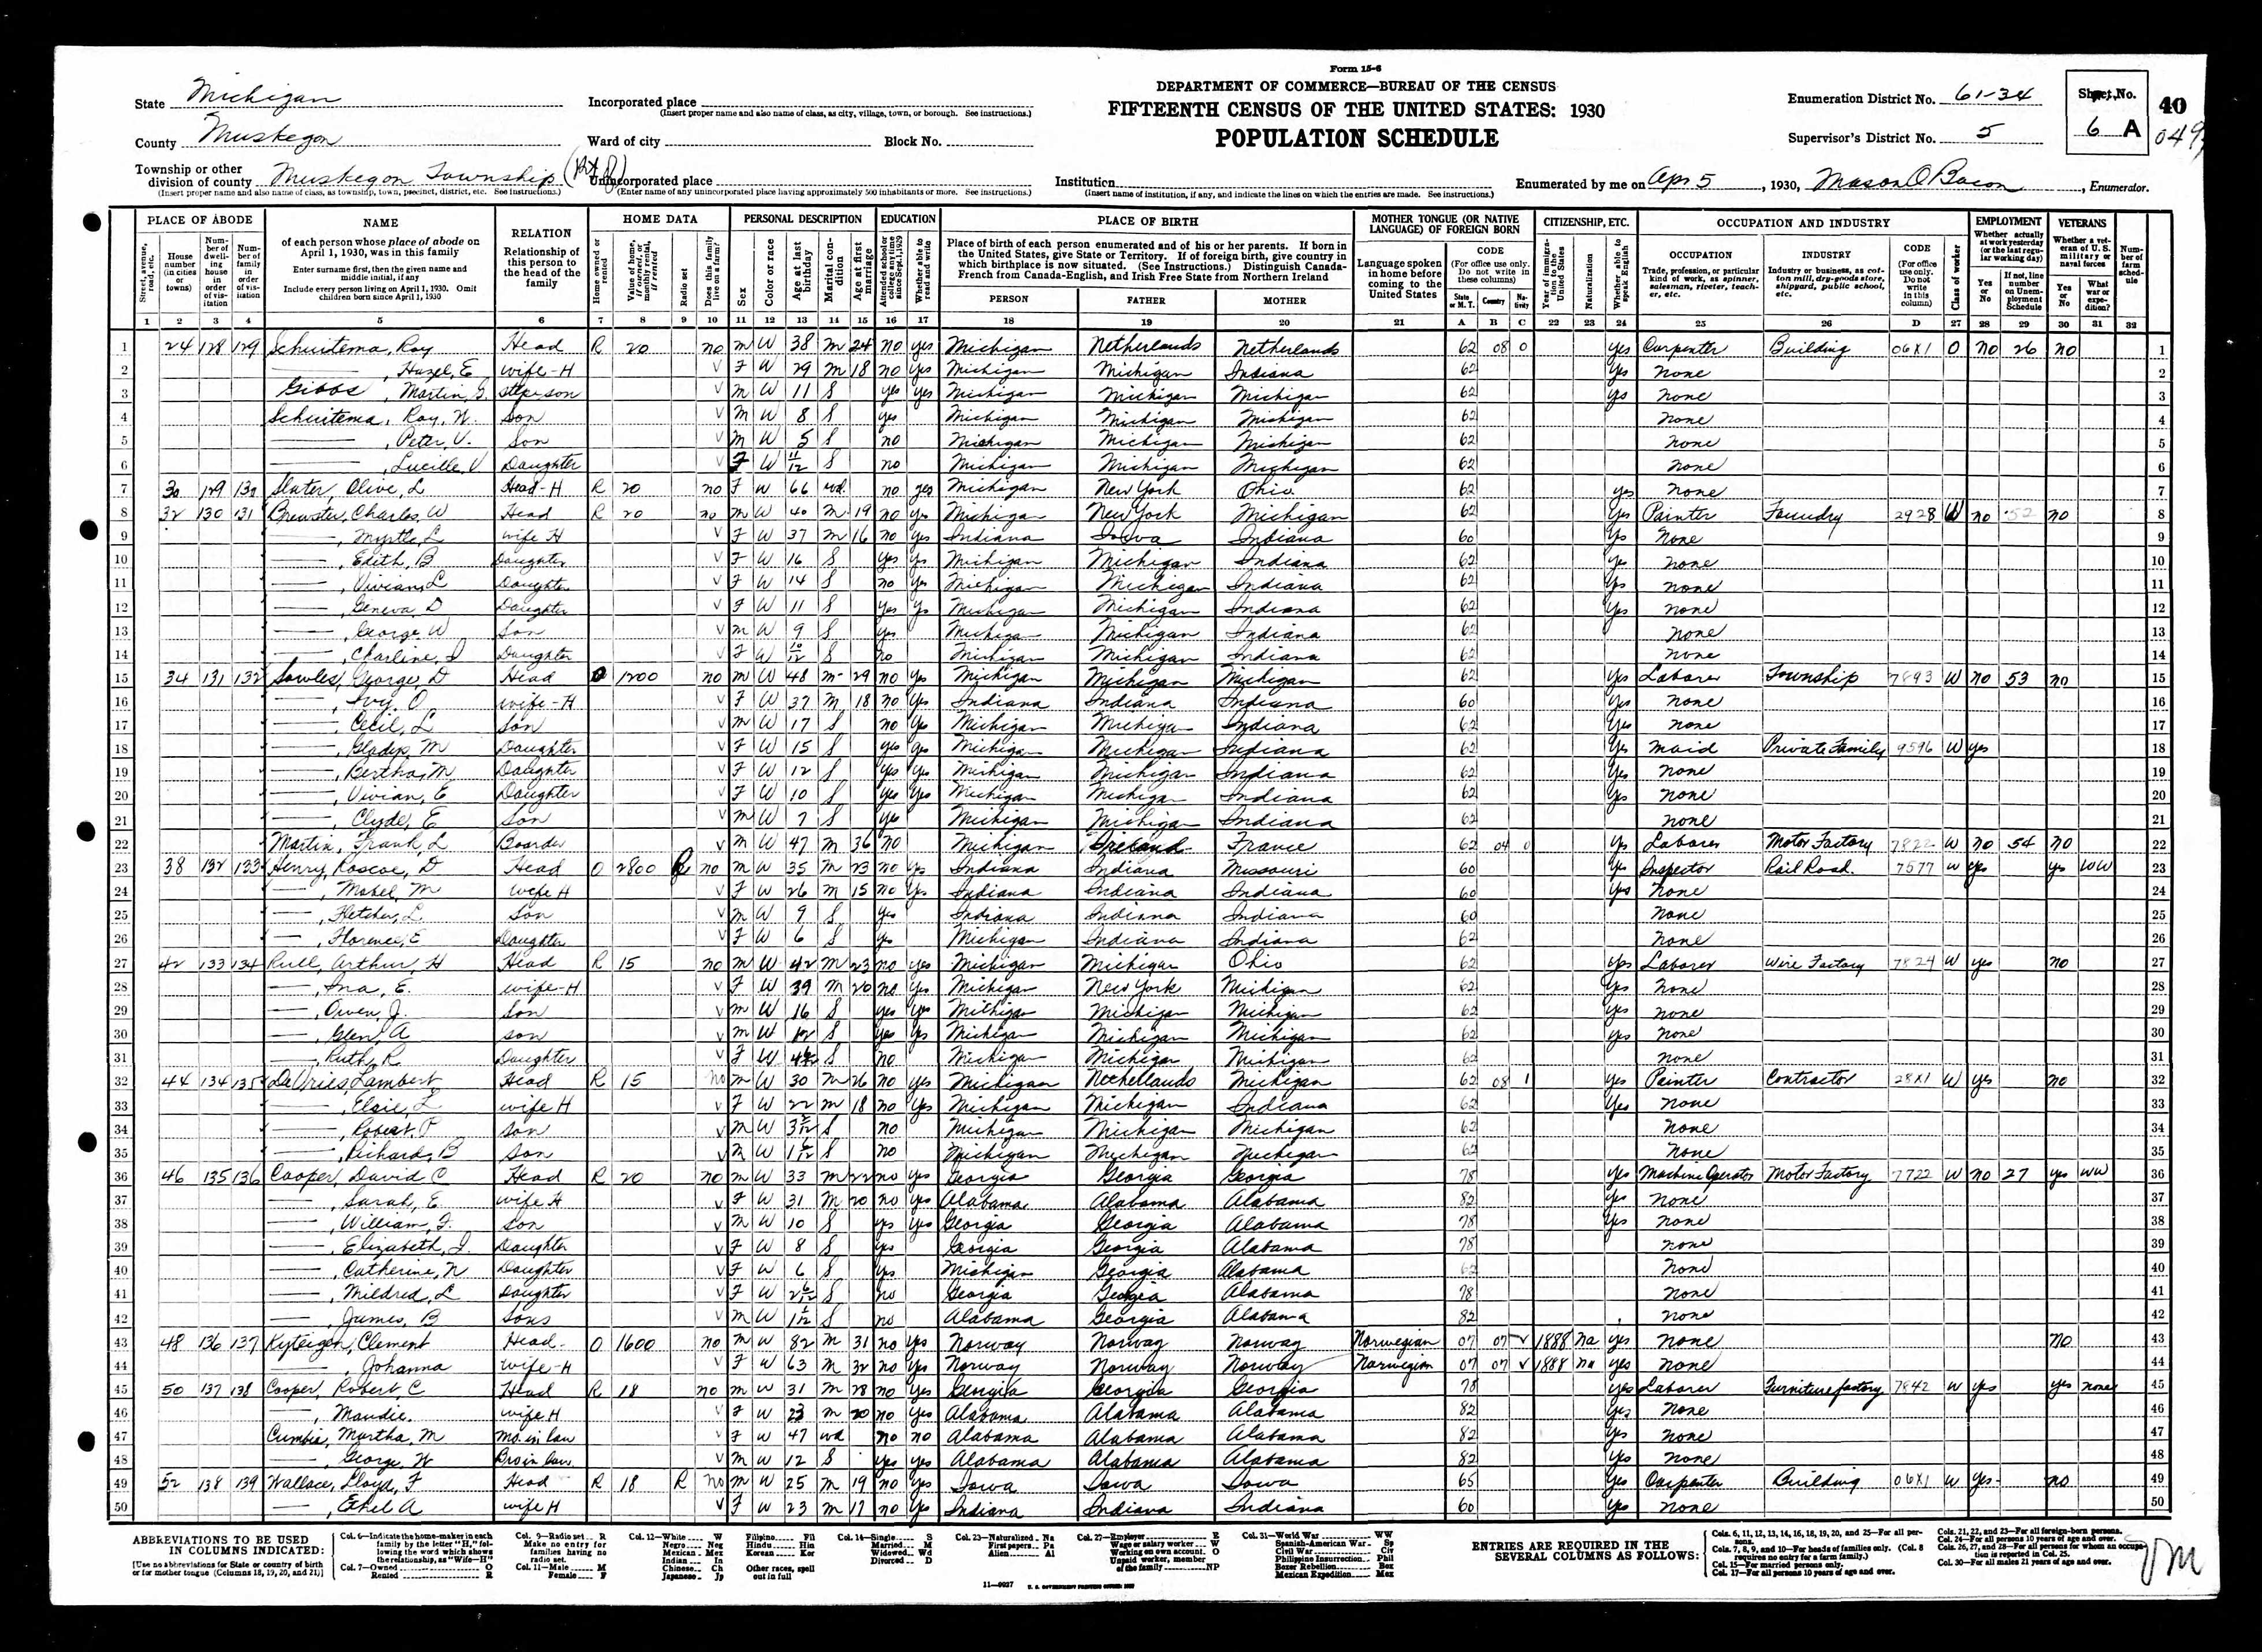 Form 15-6
State Michigan
County Muskegon
Township or other division of county Muskegon Township (Pt of)
(Insert proper name and also name of class, as township, town, precinct, district, etc. See instructions.)
Incorporated place
(Insert proper name and also name of class, as city, village, town, or borough. See instructions.)
Ward of city Block No.
Unincorporated place
(Enter name of any unincorporated place having approximately 500 inhabitants or more. See instructions.)
DEPARTMENT OF COMMERCE—BUREAU OF THE CENSUS
FIFTEENTH CENSUS OF THE UNITED STATES: 1930
POPULATION SCHEDULE
Institution
(Insert name of institution, if any, and indicate the lines on which the entries are made. See instructions.)
Enumeration District No. 61-34
Supervisor's District No. 5
Sheet No. 6 A
40
Enumerated by me on Apr 5, 1930, Mason O Bacon, Enumerator.
PLACE OF ABODE NAME RELATION HOME DATA PERSONAL DESCRIPTION EDUCATION PLACE OF BIRTH MOTHER TONGUE (OR NATIVE LANGUAGE) OF FOREIGN BORN CITIZENSHIP, ETC. OCCUPATION AND INDUSTRY EMPLOYMENT VETERANS
1 2 3 4 5 6 7 8 9 10 11 12 13 14 15 16 17 18 19 20 21 A B C 22 23 24 25 26 D 27 28 29 30 31 32
1 24 128 129 Schuitema, Roy Head R 20 no M W 38 M 24 no yes Michigan Netherlands Netherlands 62 08 0 yes Carpenter Building 06X1 O no 26 no 1
2 —, Hazel, E wife-H V F W 29 M 18 no yes Michigan Michigan Indiana 62 yes none 2
3 Gibbs, Martin, G. Step son V M W 11 S yes yes Michigan Michigan Michigan 62 yes none 3
4 Schuitema, Roy, W. Son V M W 8 S yes Michigan Michigan Michigan 62 none 4
5 —, Peter, V. Son V M W 5 S no Michigan Michigan Michigan 62 none 5
6 —, Lucille, V Daughter V F W 11/12 S no Michigan Michigan Michigan 62 none 6
7 30 129 130 Slater, Olive, L Head-H R 20 no F W 66 wd no yes Michigan New York Ohio 62 yes none 7
8 32 130 131 Brewster, Charles, W Head R 20 no M W 40 M 19 no yes Michigan New York Michigan 62 yes Painter Foundry 2928 W no 52 no 8
9 —, Myrtle, L wife H V F W 37 M 16 no yes Indiana Iowa Indiana 60 yes none 9
10 —, Edith, B Daughter V F W 16 S yes yes Michigan Michigan Indiana 62 yes none 10
11 —, Vivian, L Daughter V F W 14 S no yes Michigan Michigan Indiana 62 yes none 11
12 —, Geneva D Daughter V F W 11 S yes yes Michigan Michigan Indiana 62 yes none 12
13 —, George, W Son V M W 9 S yes Michigan Michigan Indiana 62 none 13
14 —, Charline, I Daughter V F W 10/12 S no Michigan Michigan Indiana 62 none 14
15 34 131 132 Sowles, George, D Head O 1200 no M W 48 M 29 no yes Michigan Michigan Michigan 62 yes Laborer Township 7893 W no 53 no 15
16 —, Ivy, O wife-H V F W 37 M 18 no yes Indiana Indiana Indiana 60 yes none 16
17 —, Cecil, L Son V M W 17 S no yes Michigan Michigan Indiana 62 yes none 17
18 —, Gladys, M Daughter V F W 15 S yes yes Michigan Michigan Indiana 62 yes maid Private Family 9596 W yes 18
19 —, Bertha, M Daughter V F W 12 S yes yes Michigan Michigan Indiana 62 yes none 19
20 —, Vivian, E Daughter V F W 10 S yes yes Michigan Michigan Indiana 62 yes none 20
21 —, Clyde, E Son V M W 7 S yes Michigan Michigan Indiana 62 none 21
22 Martin, Frank, L Boarder V M W 47 M 36 no Michigan Ireland France 62 04 0 yes Laborer Motor Factory 7822 W no 54 no 22
23 38 132 133 Henry, Roscoe, D Head O 2800 R no M W 35 M 23 no yes Indiana Indiana Missouri 60 yes Inspector Rail Road 7577 W yes yes WW 23
24 —, Mabel, M wife H V F W 26 M 15 no yes Indiana Indiana Indiana 60 yes none 24
25 —, Fletcher, L. Son V M W 9 S yes Indiana Indiana Indiana 60 none 25
26 —, Florence, E Daughter V F W 6 S yes Michigan Indiana Indiana 62 none 26
27 42 133 134 Rull, Arthur, H Head R 15 no M W 42 M 23 no yes Michigan Michigan Ohio 62 yes Laborer Wire Factory 7824 W yes no 27
28 —, Ina, E. wife-H V F W 39 M 20 no yes Michigan New York Michigan 62 yes none 28
29 —, Owen, J. Son V M W 16 S yes yes Michigan Michigan Michigan 62 yes none 29
30 —, Glen, A son V M W 12 S yes yes Michigan Michigan Michigan 62 yes none 30
31 —, Ruth, R Daughter V F W S no Michigan Michigan Michigan 62 none 31
32 44 134 135 DeVries, Lambert Head R 15 no M W 30 M 26 no yes Michigan Netherlands Michigan 62 08 1 yes Painter Contractor 28X1 W yes no 32
33 —, Elsie, L wife H V F W 22 M 18 no yes Michigan Michigan Indiana 62 yes none 33
34 —, Robert, P Son V M W S no Michigan Michigan Michigan 62 none 34
35 —, Richard, B Son V M W S no Michigan Michigan Michigan 62 none 35
36 46 135 136 Cooper, David C Head R 20 no M W 33 M 22 no yes Georgia Georgia Georgia 78 yes Machine Operator Motor Factory 7722 W no 27 yes WW 36
37 —, Sarah, E wife H V F W 31 M 20 no yes Alabama Alabama Alabama 82 yes none 37
38 —, William, F. Son V M W 10 S yes yes Georgia Georgia Alabama 78 yes none 38
39 —, Elizabeth, I. Daughter V F W 8 S yes Georgia Georgia Alabama 78 none 39
40 —, Catherine, N Daughter V F W 6 S yes Michigan Georgia Alabama 62 none 40
41 —, Mildred, L Daughter V F W S no Georgia Georgia Alabama 78 none 41
42 —, James, B Sons V M W S no Alabama Georgia Alabama 82 none 42
43 48 136 137 Clement Head O 1600 no M W 82 M 31 no yes Norway Norway Norway Norwegian 07 07 V 1888 na yes none no 43
44 —, Johanna wife-H V F W 63 M 32 no yes Norway Norway Norway Norwegian 07 07 V 1888 na yes none 44
45 50 137 138 Cooper, Robert, C Head R 18 no M W 31 M 28 no yes Georgia Georgia Georgia 78 yes Laborer Furniture factory 7842 W yes yes none 45
46 —, Maudie wife H V F W 23 M 20 no yes Alabama Alabama Alabama 82 yes none 46
47 Cumbie, Martha, M Mo. in law V F W 47 wd no no Alabama Alabama Alabama 82 yes none 47
48 —, George, W Bro in law V M W 12 S yes yes Alabama Alabama Alabama 82 yes none 48
49 52 138 139 Wallace, Lloyd, F Head R 18 R no M W 25 M 19 no yes Iowa Iowa Iowa 65 yes Carpenter Building 06X1 W yes no 49
50 —, Ethel A wife H V F W 23 M 17 no yes Indiana Indiana Indiana 60 yes none 50
ABBREVIATIONS TO BE USED IN COLUMNS INDICATED:
[Use no abbreviations for State or country of birth or for mother tongue (Columns 18, 19, 20, and 21)]
ENTRIES ARE REQUIRED IN THE SEVERAL COLUMNS AS FOLLOWS: